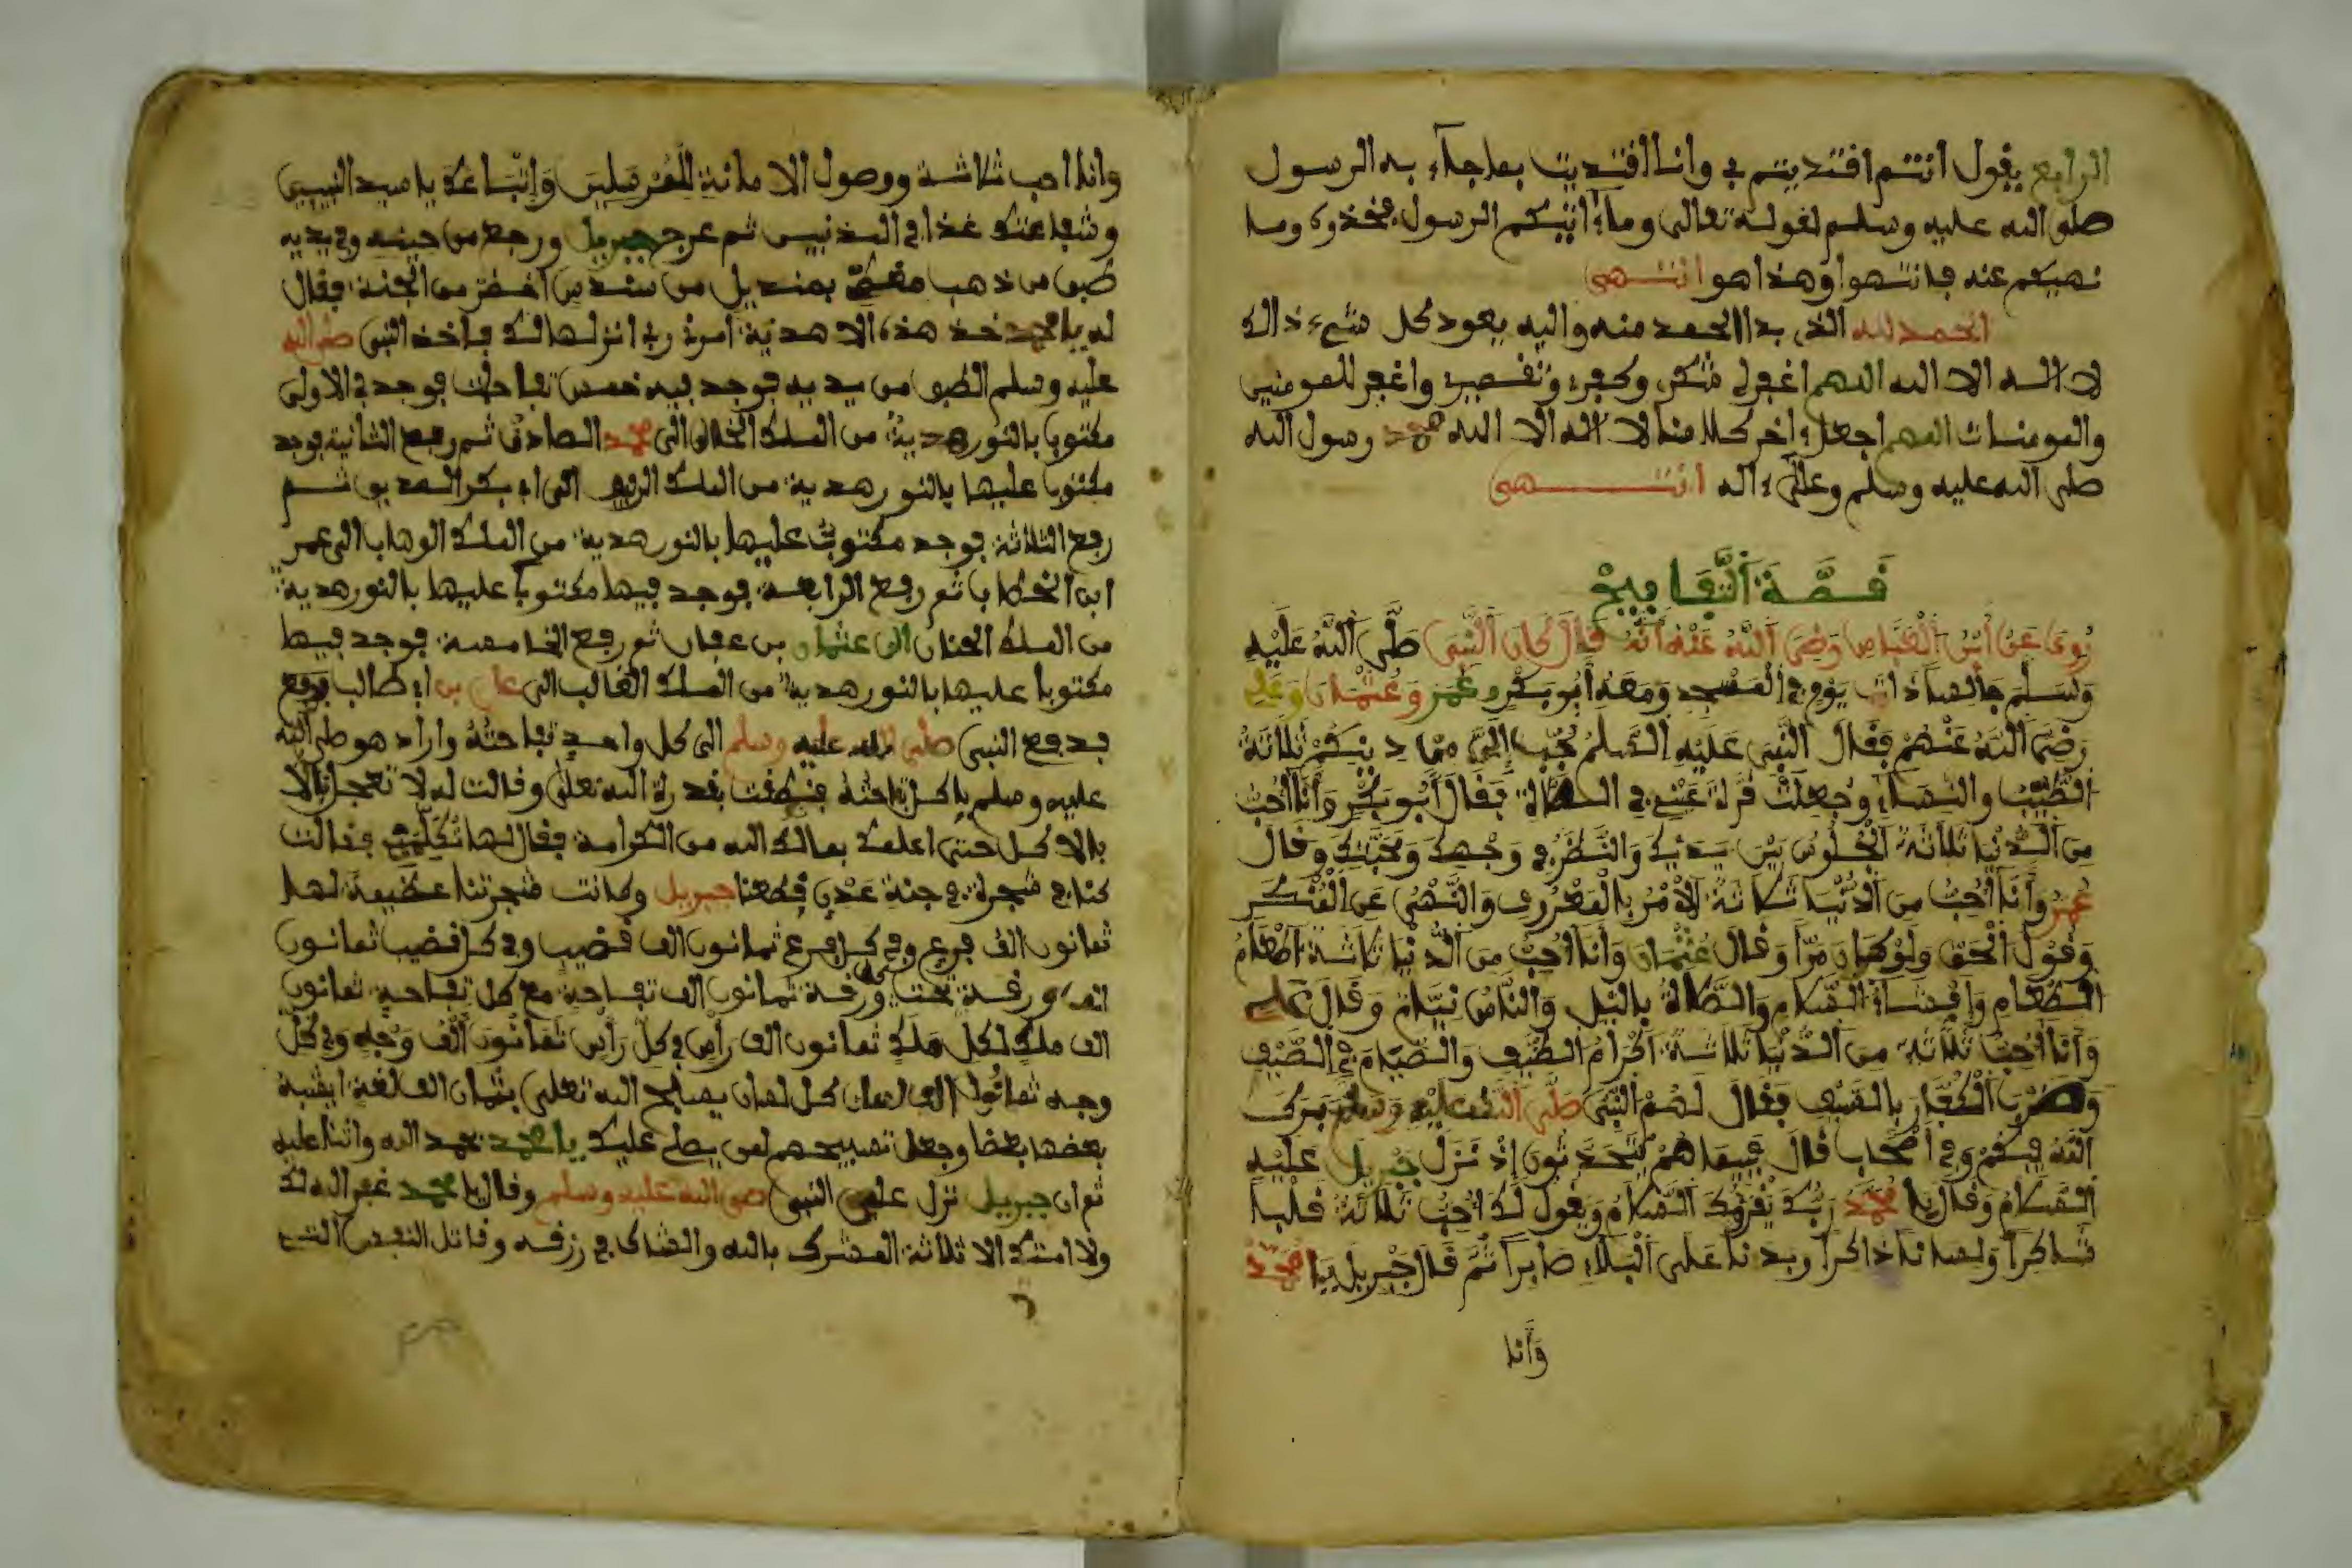 الرابع يقول انتم اقتديتم بي وانا اقتديت بما جآء به الرسول
صلى الله عليه وسلم لقوله تعالى وما ءاتيكم الرسول فخذوه وما
نهيكم عنه فانتهوا وهذا هو انتهى
الحمد لله الذي بدا الحمد منه واليه يعود كل شيء ذالك
لا اله الا الله اللهم اغفر لي شكي وكفري وتقصيري واغفر للمومنين
والمومنات اللهم اجعل ءاخر كلامنا لا اله الا الله محمد رسول الله
صلى الله عليه وسلم وعلى ءاله انتهى
قصَّة التَّفافِيحْ
رُوِيَ عَنْ اُبْنِ الْعَبَّاسِ رَضِيَ اَللَّهُ عَنْهُ أَنَّهُ قَالَ كَانَ اَلنَّبِي صَلَّى اَللَّهُ عَلَيْهِ
وَسَلَّمَ جَالِسًا ذَاتَ يَوْمٍ فِي الْمَسْجِدِ وَمَعَهُ أَبُو بَكْرٍ وعُمَر وَعُثْمَان وَعَلِي
رَضِيَ اَللَّهُ عَنْهُمْ فَقَالَ النَّبِي عَلَيْهِ السَّلَمُ حُبِّبَ إِلَيَّ مِن دُنْيَكُمْ ثَلَاثَةٌ
الطِّيبُ والنِّسَاءِ وَجُعِلَتْ قُرَّةُ عَيْنِي فِي الصَّلَاةِ فَقَالَ أَبُو بَكْرٍ وَأَنَا أُحِبُّ
مِنَ اَلدُّنْيَا ثَلَاثَةً الْجُلُوسَ بَيْنَ يَدَيْكَ وَالنَّظَرَ فِي وَجْهِكَ وَمَحَبَّتِكَ وقَالَ
عُمَرُ وَأَنَا أُحِبُّ مِنَ الدُّنْيَا ثَلَاثَةً اَلْأَمْرُ بِالْمَعْرُوفِ وَالنَّهْيُ عَنِ الْمُنْكَر
وَقَوْلُ الْحَقِّ وَلَوْ كَانَ مُرّاً وَقَالَ عُثْمَان وَأَنَا أُحِبُّ مِنَ الدُّنْيَا ثَلَاثَةً إِطْعَامُ
الطَّعَامِ وَإِفْشَاءُ السَّلَامِ وَالصَّلَاةُ بِاليْلِ وَالنَّاسُ نِيَّام وَقَالَ عَلِي
وَأَنَا أُحِبُّ ثَلَاثَة مِنَ الدُّنْيَا ثَلَاثَة إِكْرَامُ الضَّيْفِ وَالصِّيَامَ فِي الصَّيْفِ
وَضَرْبَ الْكُفَّارِ بِالسَّيْفِ فَقَالَ لَهُمُ النَّبِيِّ صَلَّى اللهُ عَلَيْهِ وَسَلَّم بَرَكَ
اللَّهُ فِيكُمْ وَفِي أَصْحَابِ قَالَ فَبَيْنَمَا هُمْ يَتَحَدَّثُونَ إِذْ نَزَلَ جِبْرِيل عَلَيْهِ
السَّلَامُ وَقَالَ يَا مُحَمَّد رَبُّكَ يُقْرِؤُكَ السَّلَامُ وَيَقُولُ لَكَ أُحِبُّ ثَلَاثَةً قَلْباً
شَاكِراً وَلِسَاناً ذاكراً وبدناً عَلَى الْبَلَاءِ صَابِراً ثُمَّ قَالَ جِبْرِيل يَا مُحَمَّد
وَأَنَا
وانا احب ثلاثة ووصول الامانة للمُرسَلِينَ وَإِتِّبَاعَكَ يا سيد النبيين
وشفاعتك غذا في المذنبين ثم عرج جبريل ورجع من حينه وفي يديه
طبق من ذهب مغطّى بمنديل من سندس اخضر من الجنة فقال
له يا محمد خذ هذه الاهدية امرني ربي انزلها لك فاخذ النبي صلى الله
عليه وسلم الطبق من يديه فوجد فيه خمس تفاحات فوجد في الاولى
مكتوبا بالنور هدية من الملك الخلاق الى محمد الصادق ثم رفع الثانية فوجد
مكتوبا عليها بالنور هدية من الملك الرفيق الى ابي بكر الصديق ثم
رفع الثلاثة فوجد مكتوب عليها بالنور هدية من الملك الوهاب الى عمر
ابن الخطاب ثم رفع الرابعة فوجد فيها مكتوبا عليها بالنور هدية
من الملك الحنان الى عثمان بن عفان ثم رفع الخامسة فوجد فيها
مكتوبا عليها بالنور هدية من الملك الغالب الى علي بن ابي طالب فرفع
فدفع النبي صلى الله عليه وسلم الى كل واحد تفاحتهُ واراد هو صلى الله
عليه وسلم ياكل تفاحته فنطقت بقدرة الله تعلى وقالت له لا تعجل بالا
بالاكل حتى اعلمك بمالك الله من الكرامة فقال لها تكلّمي فقالت
كنا في شجرة في جنة عدن فقطعنا جبريل وكانت شجرتنا عظيمة لها
ثمانون الف فرع وفي كل فرع ثمانون الف قضيب وفي كل قضيب ثمانون
الف ورقة تحت كل ورقة ثمانون الف تفاحة مع كل تفاحة ثمانون
الف ملك لكل ملَكٍ ثمانون الف رأس في كل رأس ثمانون ألف وَجْه وفي كل
وجه ثمانون الف لسان كل لسان يسبح الله تعلى بثمان الف لغة ايشبه
بعضها بعضا وجعل تسبيحهم لمن يصلي عليك يا محمد فحمد الله واثنا عليه
ثم ان جبريل نزل على النبي صلى الله عليه وسلم وقال يا محمد غفر الله لك
ولامتك الا ثلاثة المشرك بالله والشاك في رزقه وقاتل النفس التي